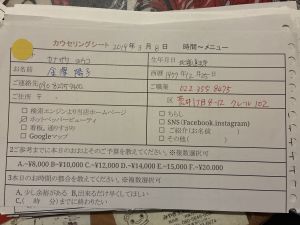 カウセリングシート 2019年 3月 8日 時間〜メニュー
お名前
生年月日
西暦 1957年12月25日
ご連絡先
ご職業 022 255 8675
ご住所 〒
区 荒井1丁目4-12 クレール102
□ 検索エンジンより当店ホームページ
☑ ホットペッパービューティ
□ 看板、通りすがり
□ Googleマップ
□ ちらし
□ SNS(Facebook.instagram)
□ ご紹介(お名前 )
□ その他(
2ご参考までに本日のおおよそのご予算を教えてください。※複数選択可
A.~¥8,000 B~¥10,000 C.~¥12,000 D.~¥14,000 E.~15,000 F.~¥20,000
3本日のお時間の都合を教えてください。※複数選択可
A, 少し余裕がある B,出来るだけ早くしてほしい
C,( 時 分)までに終わりたい